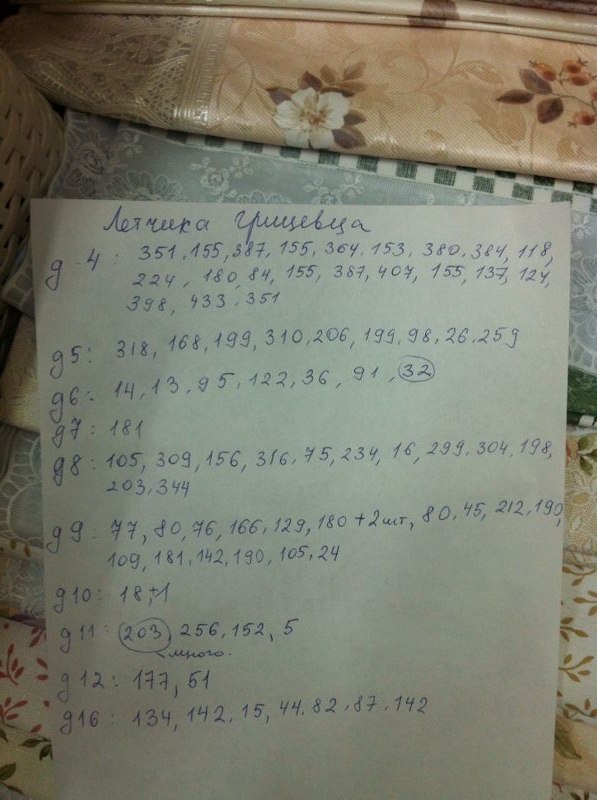 Летчика Грицевца
д. 4: 351, 155, 387, 155, 364, 153, 380, 384, 118,
224, 180, 84, 155, 387, 407, 155, 137, 124,
398, 433, 351
д5: 318, 168, 199, 310, 206, 199, 98, 26, 259
д6: 14, 13, 95, 122, 36, 91, 32
д7: 181
д8: 105, 309, 156, 316, 75, 234, 16, 299, 304, 198,
203, 344
д9: 77, 80, 76, 166, 129, 180 + 2 шт, 80, 45, 212, 190,
109, 181, 142, 190, 105, 24
д10: 18, +1
д11: 203, 256, 152, 5
много.
д12: 177, 51
д16: 134, 142, 15, 44, 82, 87, 142